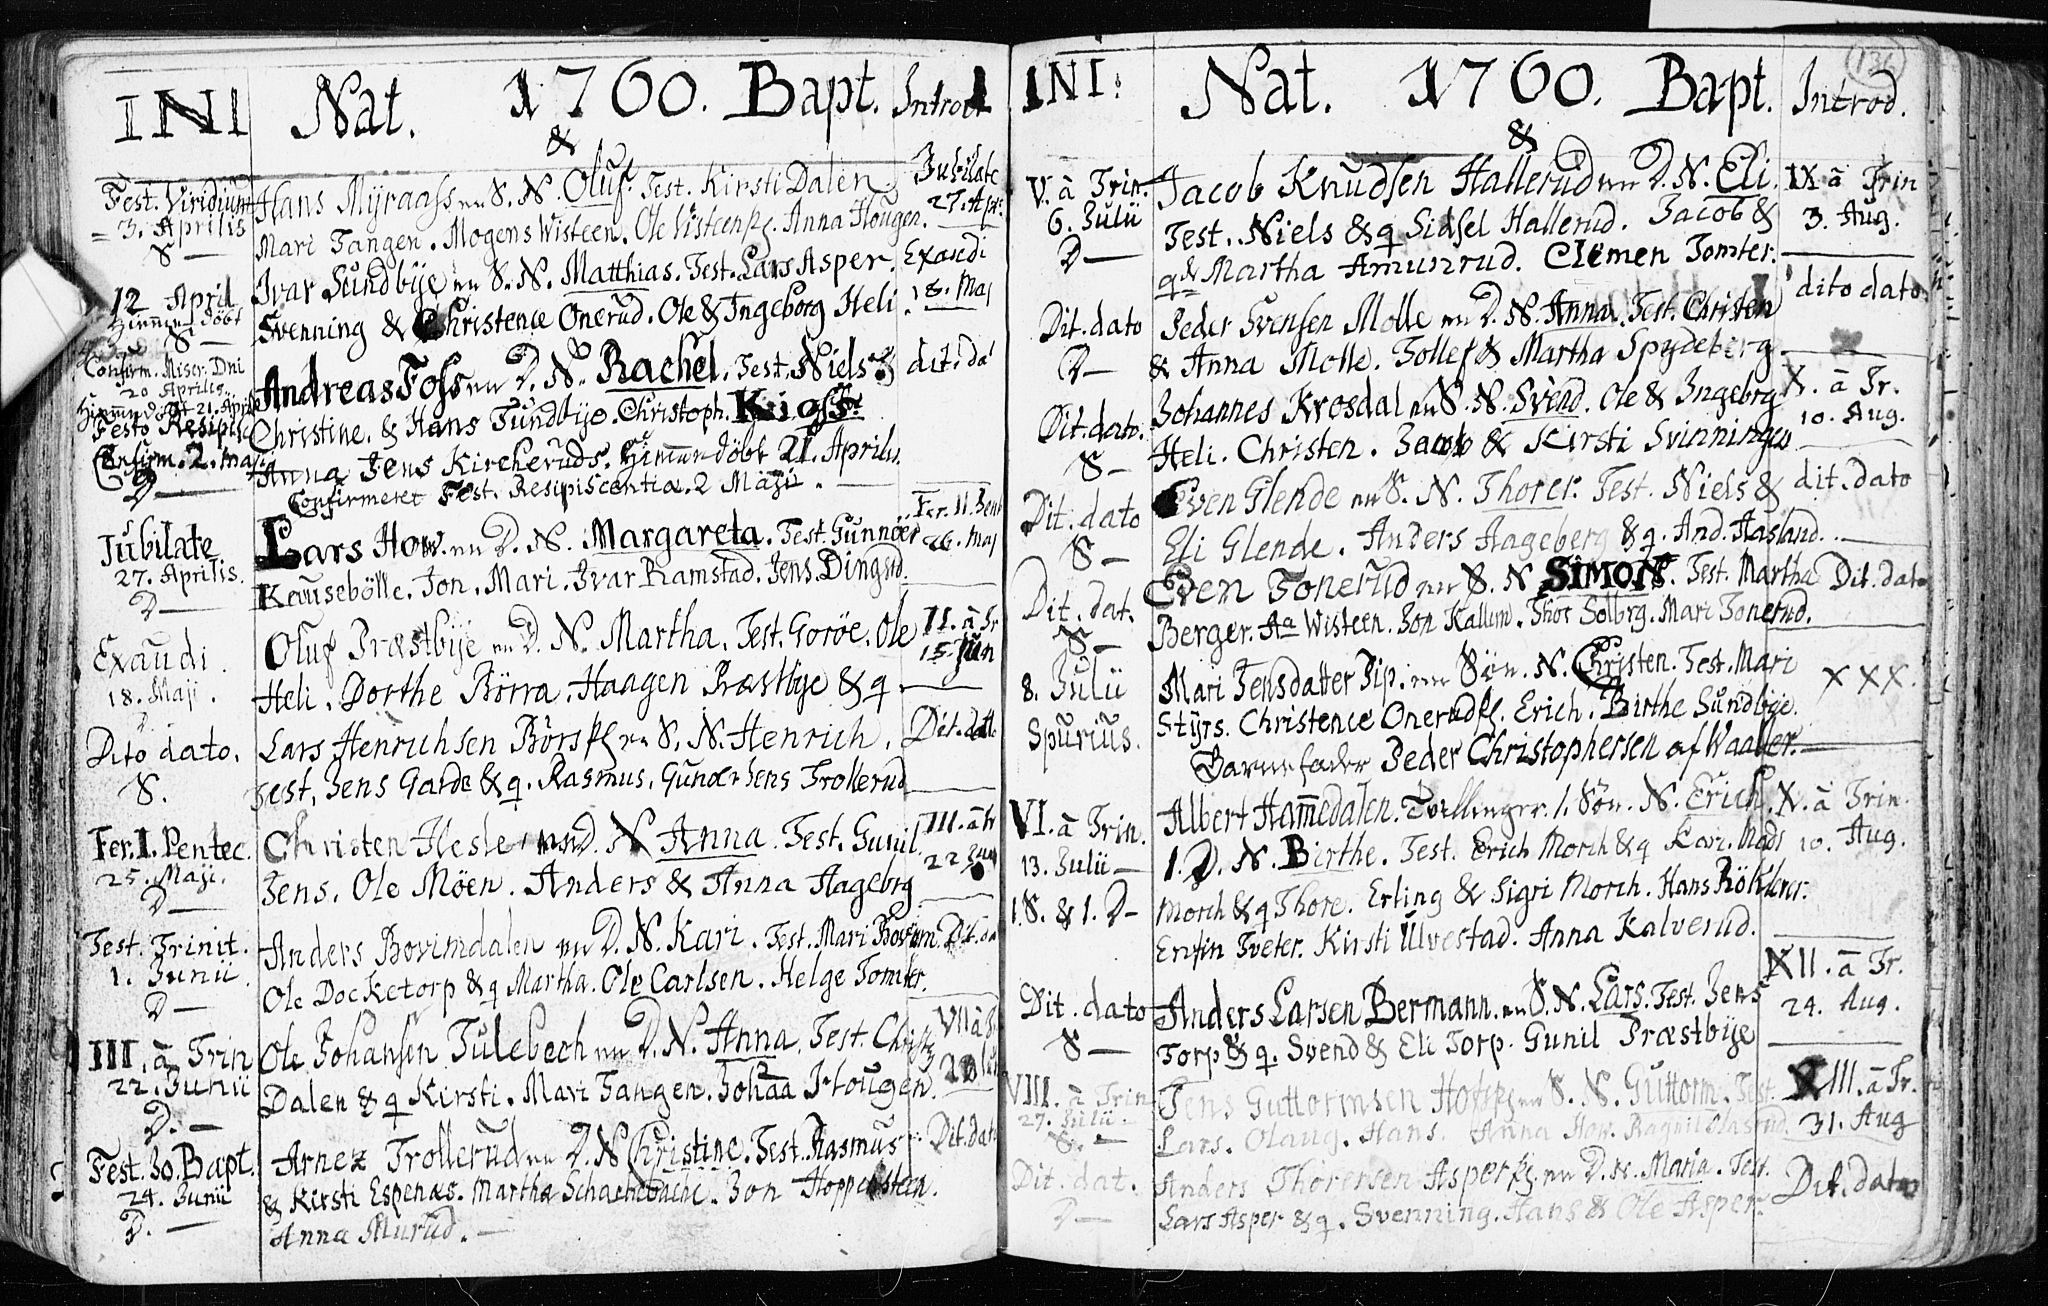 INI Nat. & 1760. Bapt. Introd
Fest. Viridium
3. Aprilis
S —
Hans Myraass en S. N. Oluf. Test. Kirsti Dalen
Mari Tangen. Mogens Wisteen. Ole Visteenspl. Anna Hougen.
Jubilate
27. Apr.
12 April
Hiemme döbt
S —
Confirm. Miser. Dni
20 Aprilis.
Ivar Sundbye en S. N. Matthias. Test. Lars Asper.
Svenning & Christence Onerud. Ole & Ingeborg Heli.
Exaudi
18. Maj
Hiemme döbt 21. April
Festo Resipisc.
Confirm. 2. Maji
D —
Andreas Foss en D. N. Rachel. Test. Niels &
Christine. & Hans Sundbye. Christoph.
Anna Jens Kircheruds. Hiemme döbt 21. Aprilis.
Confirmeret Fest. Resipiscentiæ. 2 Maji.
dit. da
Jubilate
27. Aprilis.
D —
Lars How. en D. N. Margareta. Test. Gunnder
Kausebölle. Jon. Mari. Ivar Ramstad. Jens Dingstd.
Fer. II. Pent
26. Maj
Exaudi.
18. Maji.
D.
Oluf Præstbye en D. N. Martha. Test. Goröe. Ole
Heli. Dorthe Börra. Haagen Præstbye & q.
II. à Tr
15. Jun
Dito dato.
S.
Lars Henrichsen Börspl en S. N. Henrich.
Test. Jens Garde & q. Rasmus. Gunder Jens Trollerud
Dit. datto
Fer. I. Pentec.
25. Maji.
D —
Christen Hesle en D. N Anna. Test. Gunil
Jens. Ole Möen. Anders & Anna Hageberg
III. à tr
22 Jun
Fest. Trinit.
1. Junii.
D —
Anders Bovimdalen en D. N. Kari. Test. Mari Bovim.
Ole Docketorp & q Martha. Ole Carlsen. Helge Tomter.
Dit. da
III. à Trin
22. Junii
D. —
Ole Johansen Tulebech en D. N. Anna. Test. Christ
Dalen & q Kirsti. Mari Tangen. Joh̄aa Hougen.
VII à Tr
20 Jul
Fest. Jo. Bapt.
24. Junii
D. —
Arnez Trollerud en D. N Christine. Test. Rasmus
& Kirsti Espenæs. Martha Schachebache. Jon Hoppesteen.
Anna Murud. —
Dit. dato
INI: Nat. & 1760. Bapt. Introd.
136
V. à Trin.
6. Julii
D —
Jacob Knudsen Hallerud en D. N. Eli.
Test. Niels & q Sidsel Hallerud. Jacob &
q Martha Amunrud. Clemen Tomter.
IX à Trin
3. Aug.
Dit. dato
D —
Peder Svensen Molle en D. N. Anna. Test. Christen
& Anna Molle. Tollef & Martha Spydeberg
dito dato
Dit. dato.
S —
Johannes Krosdal en S. N. Svend. Ole & Ingebrg
Heli. Christen. Jacob & Kirsti Svinningen
X. à Tr.
10. Aug.
Dit. dato
S —
Even Glende en S. N. Thorer. Test. Niels &
Eli Glende. Anders Hageberg & q. And. Hasland.
dit. dato
Dit. dat.
S —
Even Tonerud en S. N SIMON. Test. Martha
Berger. Aa Wisteen. Jon Kallum. Thor Solbrg. Mari Tonerud.
Dit. dato
8. Julii
Spurius.
Mari Jensdatter Pip. en Sön. N. Christen. Test. Mari
Styrs. Christence Onerudspl. Erich. Birthe Sundbye.
Barnefader Peder Christophersen af Waaler.
XXX.
VI. à Trin.
13. Julii —
1. S. & 1. D —
Albert Ham̄edalen. Tvillinger. 1. Sön. N. Erich.
1. D. N. Birthe. Test. Erich Morch & q Kari. Mads
Morch & q Thore. Erling & Sigri Morch. Hans Röklever.
Enfin Tveter. Kirsti Ulvestad. Anna Kalverud.
X. à Trin.
10. Aug.
Dit. dato
S —
Anders Larsen Bermann. en S. N. Lars. Test. Jens
Torp & q. Svend & Eli Torp. Gunil Præstbye
XII. à Tr.
24. Aug.
VIII. à Trin
27. Julii.
S. —
Jens Guttormsen Hofspl en S. N. Guttorm. Test.
Lars. Olaug. Hans. Anna How. Ragnil
XIII. à Tr.
31. Aug
Dit. dat.
D —
Anders Thoresen Asperspl. en D. N. Maria. Test.
Lars Asper & q. Svenning. Hans & Ole Asper.
Dit. dato